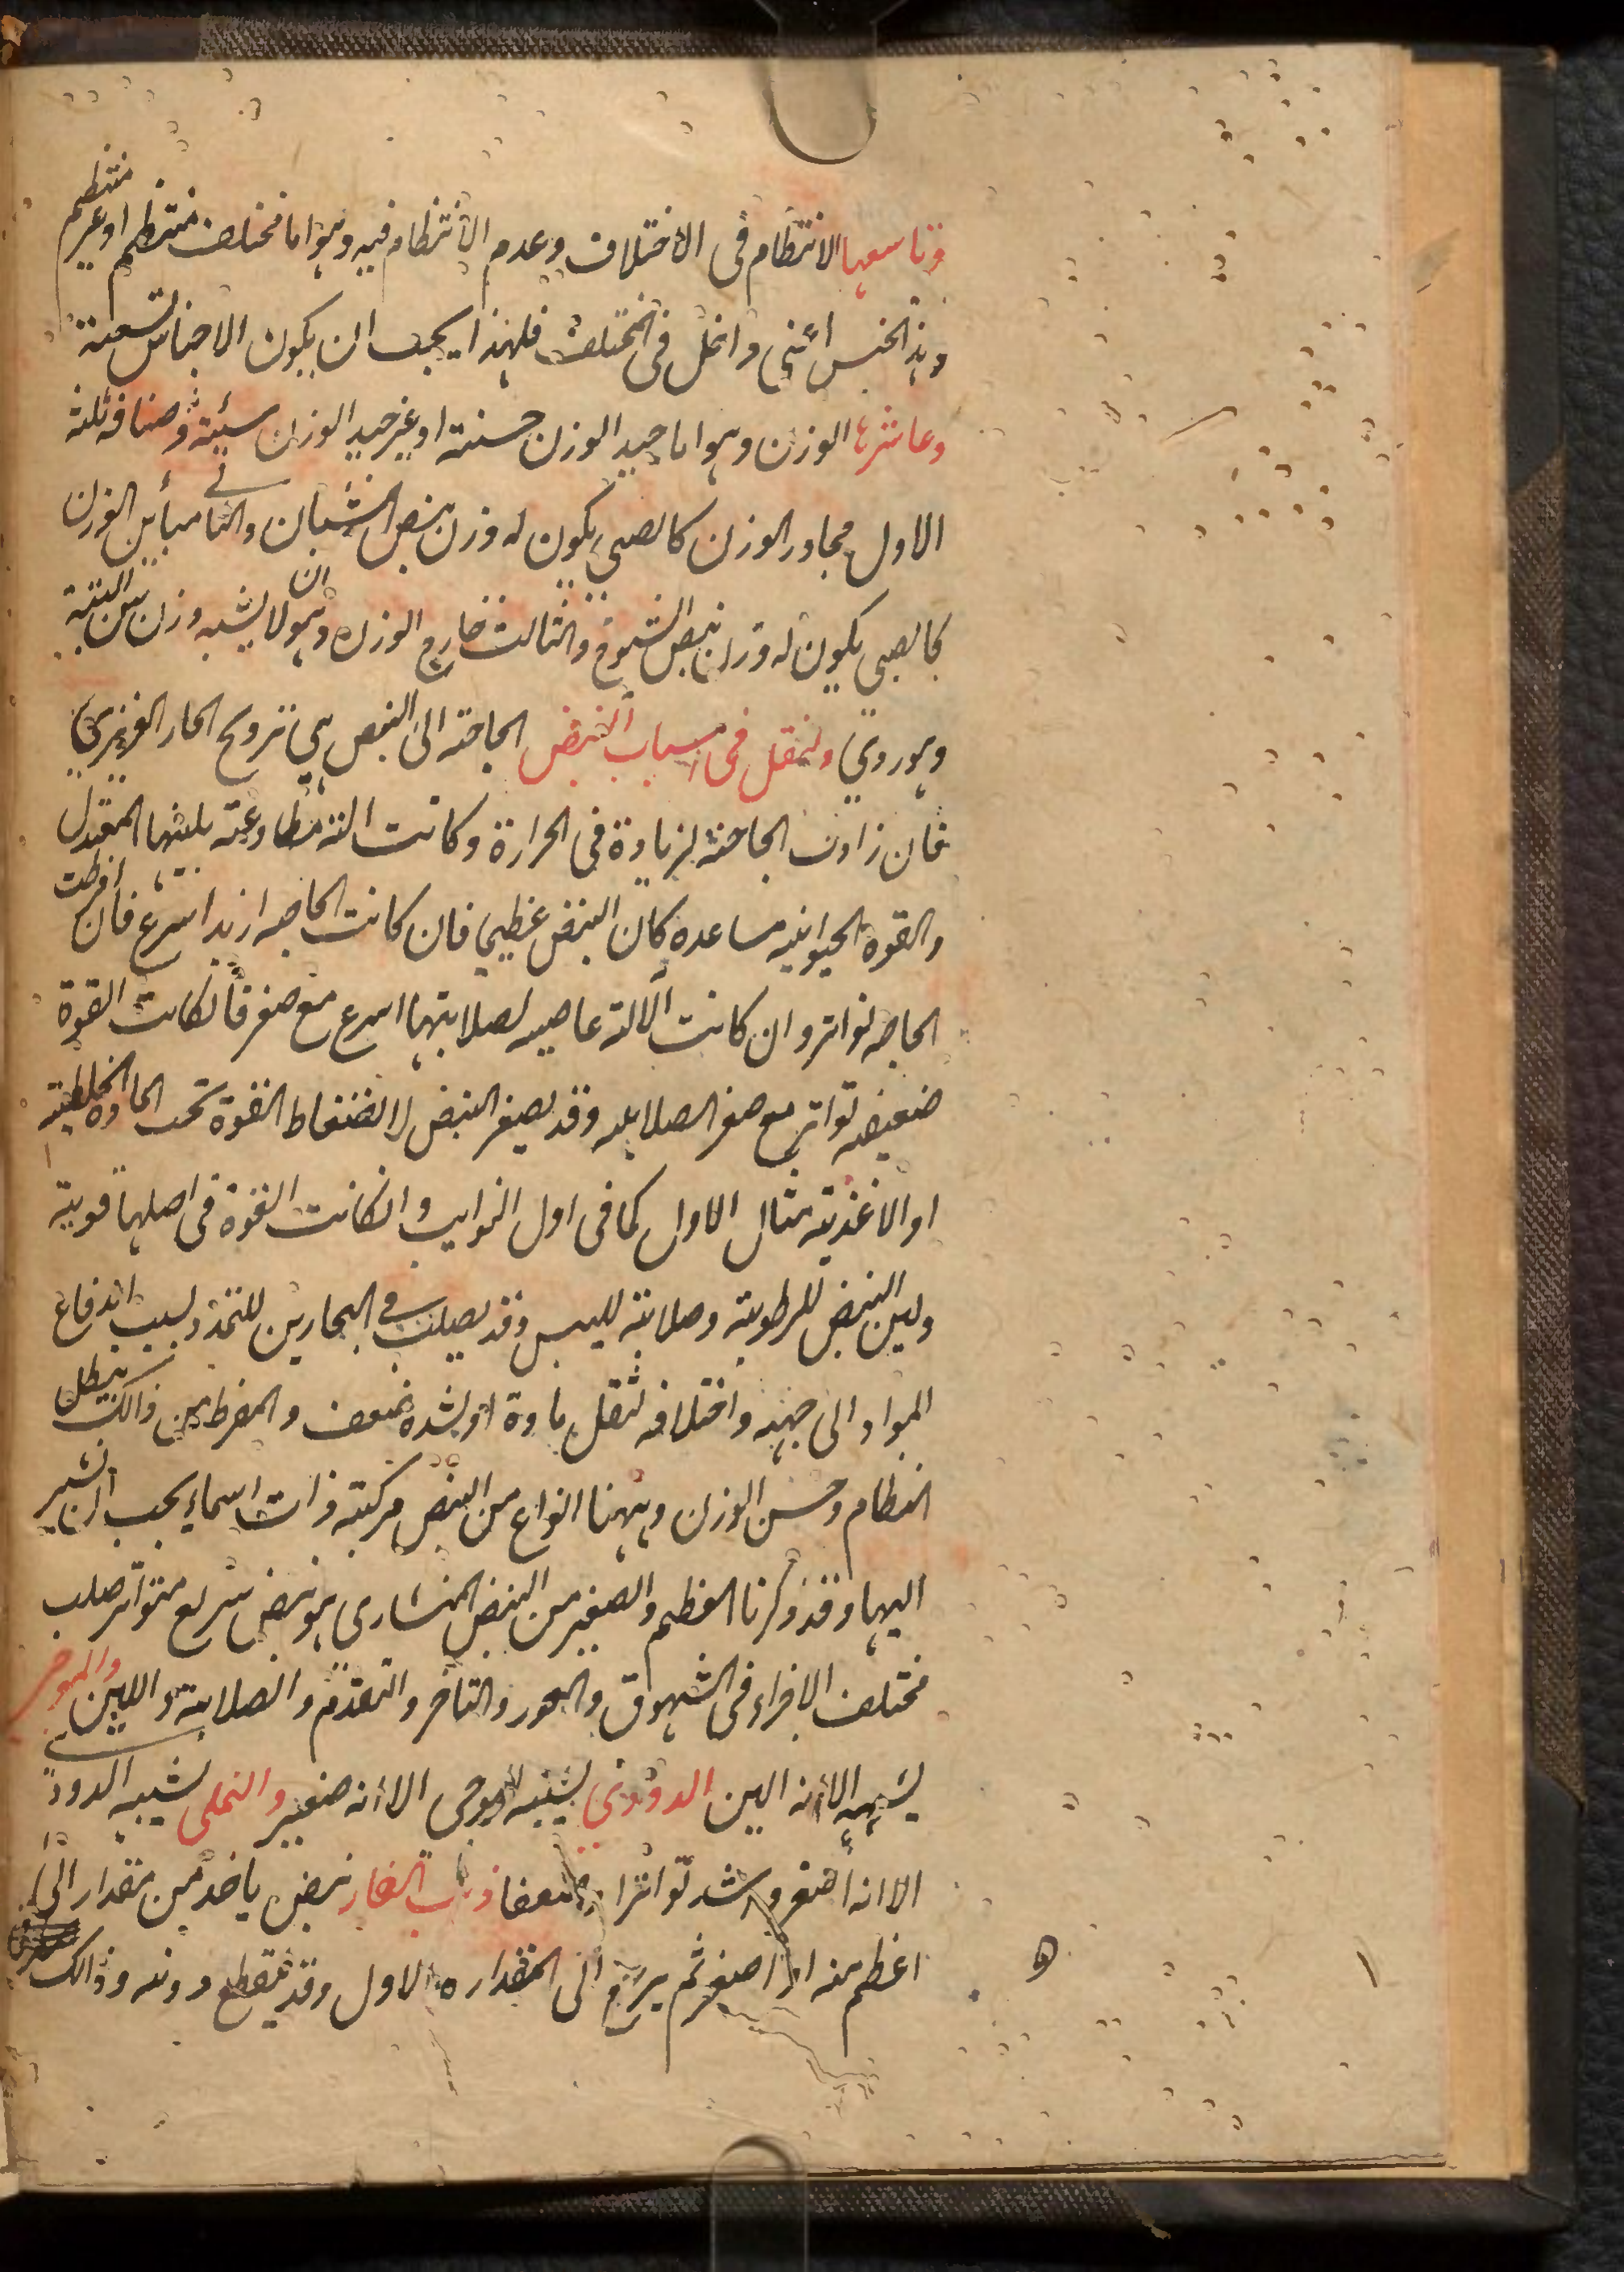 وتاسعها الانتظام فى الاختلاف وعدم الانتظام فيه وهو اما مختلف منتظم او غير منتظم
وهذا الجنس داخل فى المختلف فلهذا يجب ان يكون الاجناس تسعة
وعاشرها الوزن وهو اما جيد الوزن حسنة او غير جيد الوزن سيئة واصنافه ثلثة
الاول مجاور الوزن كالصبي يكون له وزن نبض الشبان والثاني مباين الوزن
كالصبي يكون له وزن نبض الشيوخ والثالث خارج الوزن وهو ان لا يشبه وزن سن البتة
وهو ردي ولنقل فى اسباب النبض الحاجة الى النبض هي ترويح الحار الغريزي
فان زادت الحاجة لزيادة فى الحرارة وكانت الالة مطاوعة بلينها المعتدل
والقوة الحيوانيه مساعده كان النبض عظيما فان كانت الحاجه ازيد اسرع فان افرطت
الحاجه تواتر وان كانت الالة عاصيه لصلابتها اسرع مع صغر فان كانت القوة
ضعيفه تواتر مع صغر الصلابه وقد يصغر النبض لانضغاط القوة تحت المادة الخلطية
او الاغذية مثال الاول كما فى اول النوايب وان كانت القوة فى اصلها قوية
ولين النبض للرطوبة وصلابته لليبس وقد يصلب في البحارين للتمدد بسبب اندفاع
المواد الى جهه واختلافه لثقل مادة او لشدة ضعف والمفرط من ذالك يبطل
النظام وحسن الوزن وههنا انواع من النبض مركبة ذات اسماء يجب ان نشير
اليها وقد ذكرنا العظيم والصغير من النبض المنشارى هو نبض سريع متواتر صلب
مختلف الاجزاء فى الشهوق والغور والتأخر والتقدم والصلابة واللين والموجى
يشبهه الا أنه الين الدودي يشبه الموجى الا أنه صغير والنملى يشبه الدودي
الا انه أصغر واشد تواترا وضعفا ذنب الفار نبض ياخذ من مقدار الى
اعظم منه او اصغر ثم يرجع الى المقداره الاول وقد ينقطع دونه وذالك